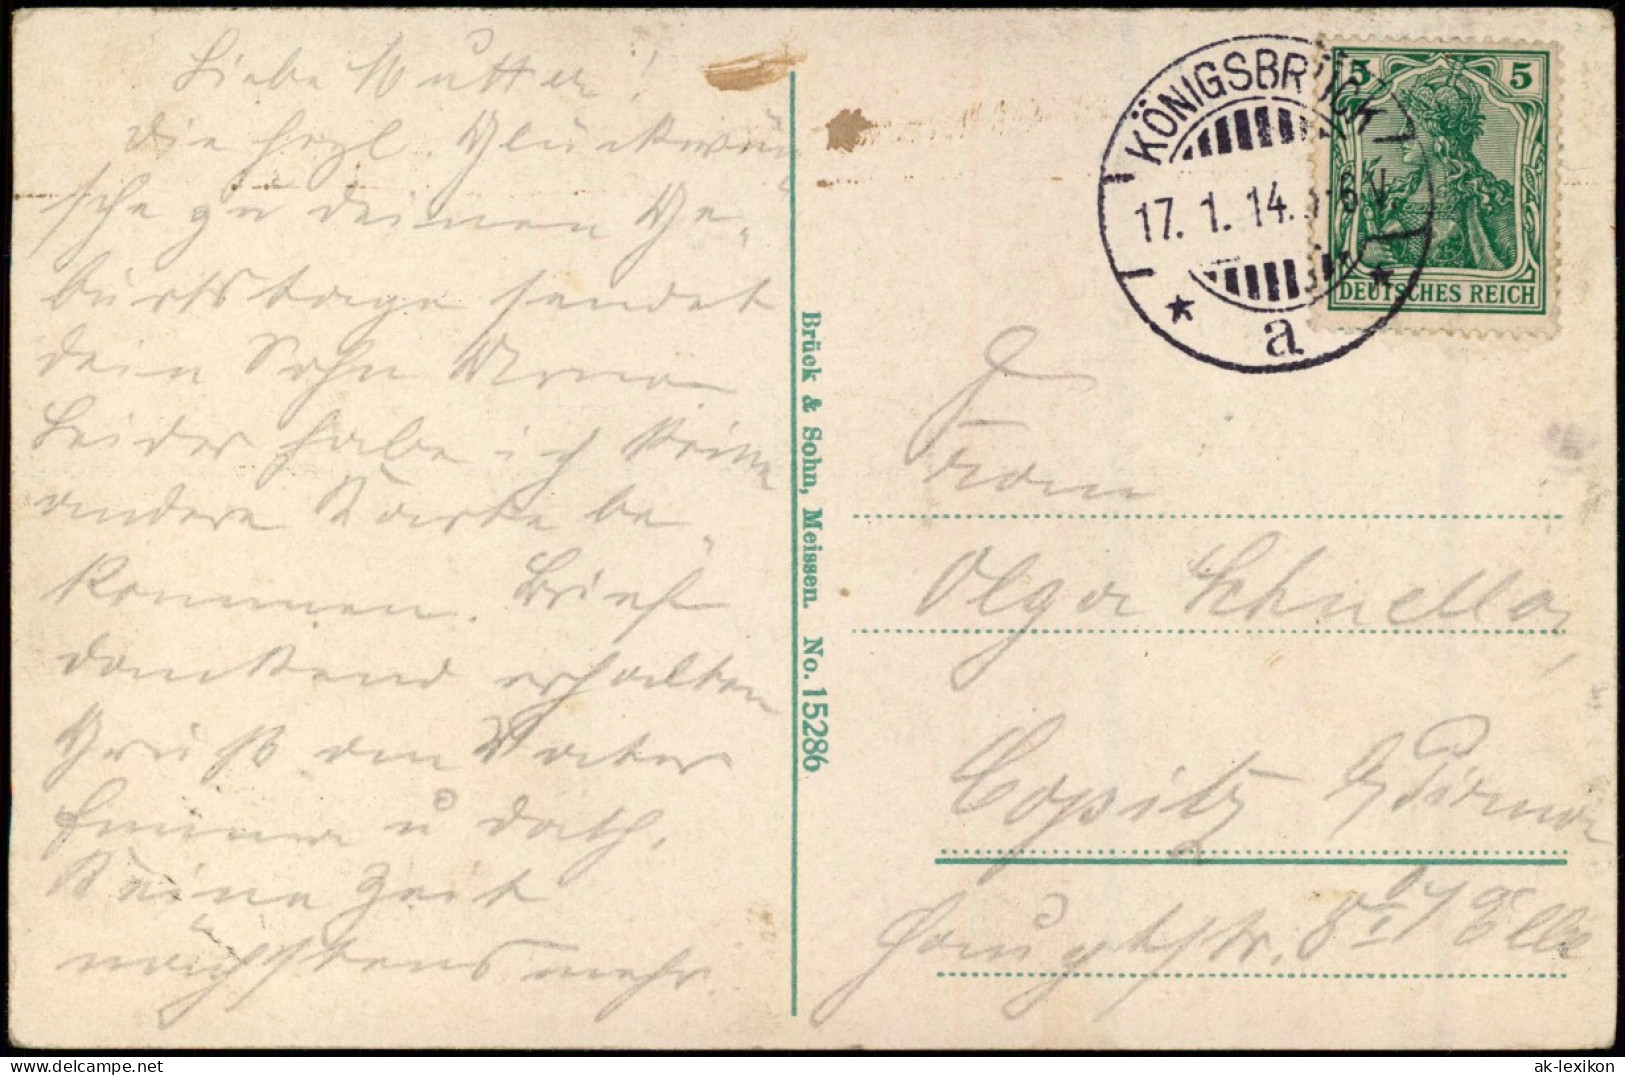 Liebe Mutter!
die herzl. Glückwün
sche zu deinem Ge-
burtstage sendet
dein Sohn Arno
Leider habe ich keine
andere Karte be-
kommen. Brief
dankend erhalten
Gruß an Vater
Emma u Doth.
Keine Zeit
nächstens mehr.
Brück & Sohn, Meissen. No. 15286
KÖNIGSBRÜCK
17. 1. 14. 5-6 V.
* a *
5 5
DEUTSCHES REICH
Frau
Olga Schnelle,
Copitz b/ Pirna
Hauptstr. 8 I a/ Elbe
ak-lexikon